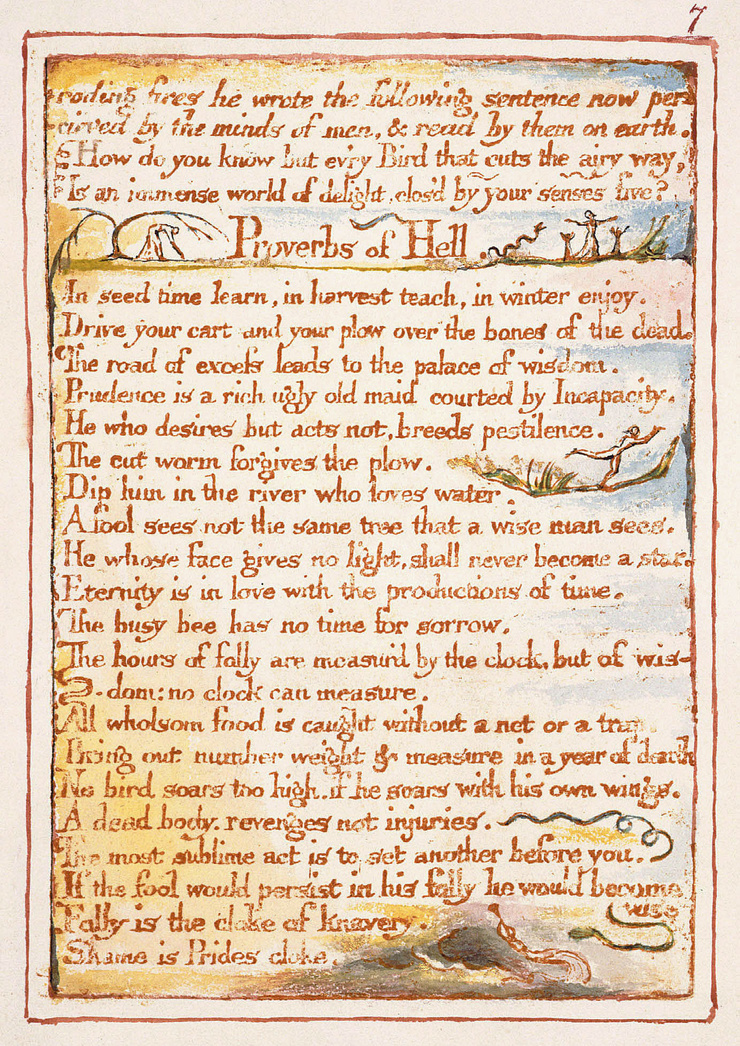 7
-roding fires he wrote the following sentence now per-
-cieved by the minds of men, & read by them on earth.
How do you know but ev'ry Bird that cuts the airy way,
Is an immense world of delight, clos'd by your senses five?
Proverbs of Hell.
In seed time learn, in harvest teach, in winter enjoy.
Drive your cart and your plow over the bones of the dead.
The road of excess leads to the palace of wisdom.
Prudence is a rich ugly old maid courted by Incapacity.
He who desires but acts not, breeds pestilence.
The cut worm forgives the plow.
Dip him in the river who loves water.
A fool sees not the same tree that a wise man sees.
He whose face gives no light, shall never become a star.
Eternity is in love with the productions of time.
The busy bee has no time for sorrow.
The hours of folly are measur'd by the clock, but of wis-
-dom: no clock can measure.
All wholsom food is caught without a net or a trap.
Bring out number weight & measure in a year of dearth
No bird soars too high. if he soars with his own wings.
A dead body. revenges not injuries.
The most sublime act is to set another before you.
If the fool would persist in his folly he would become
wise
Folly is the cloke of knavery.
Shame is Prides cloke.